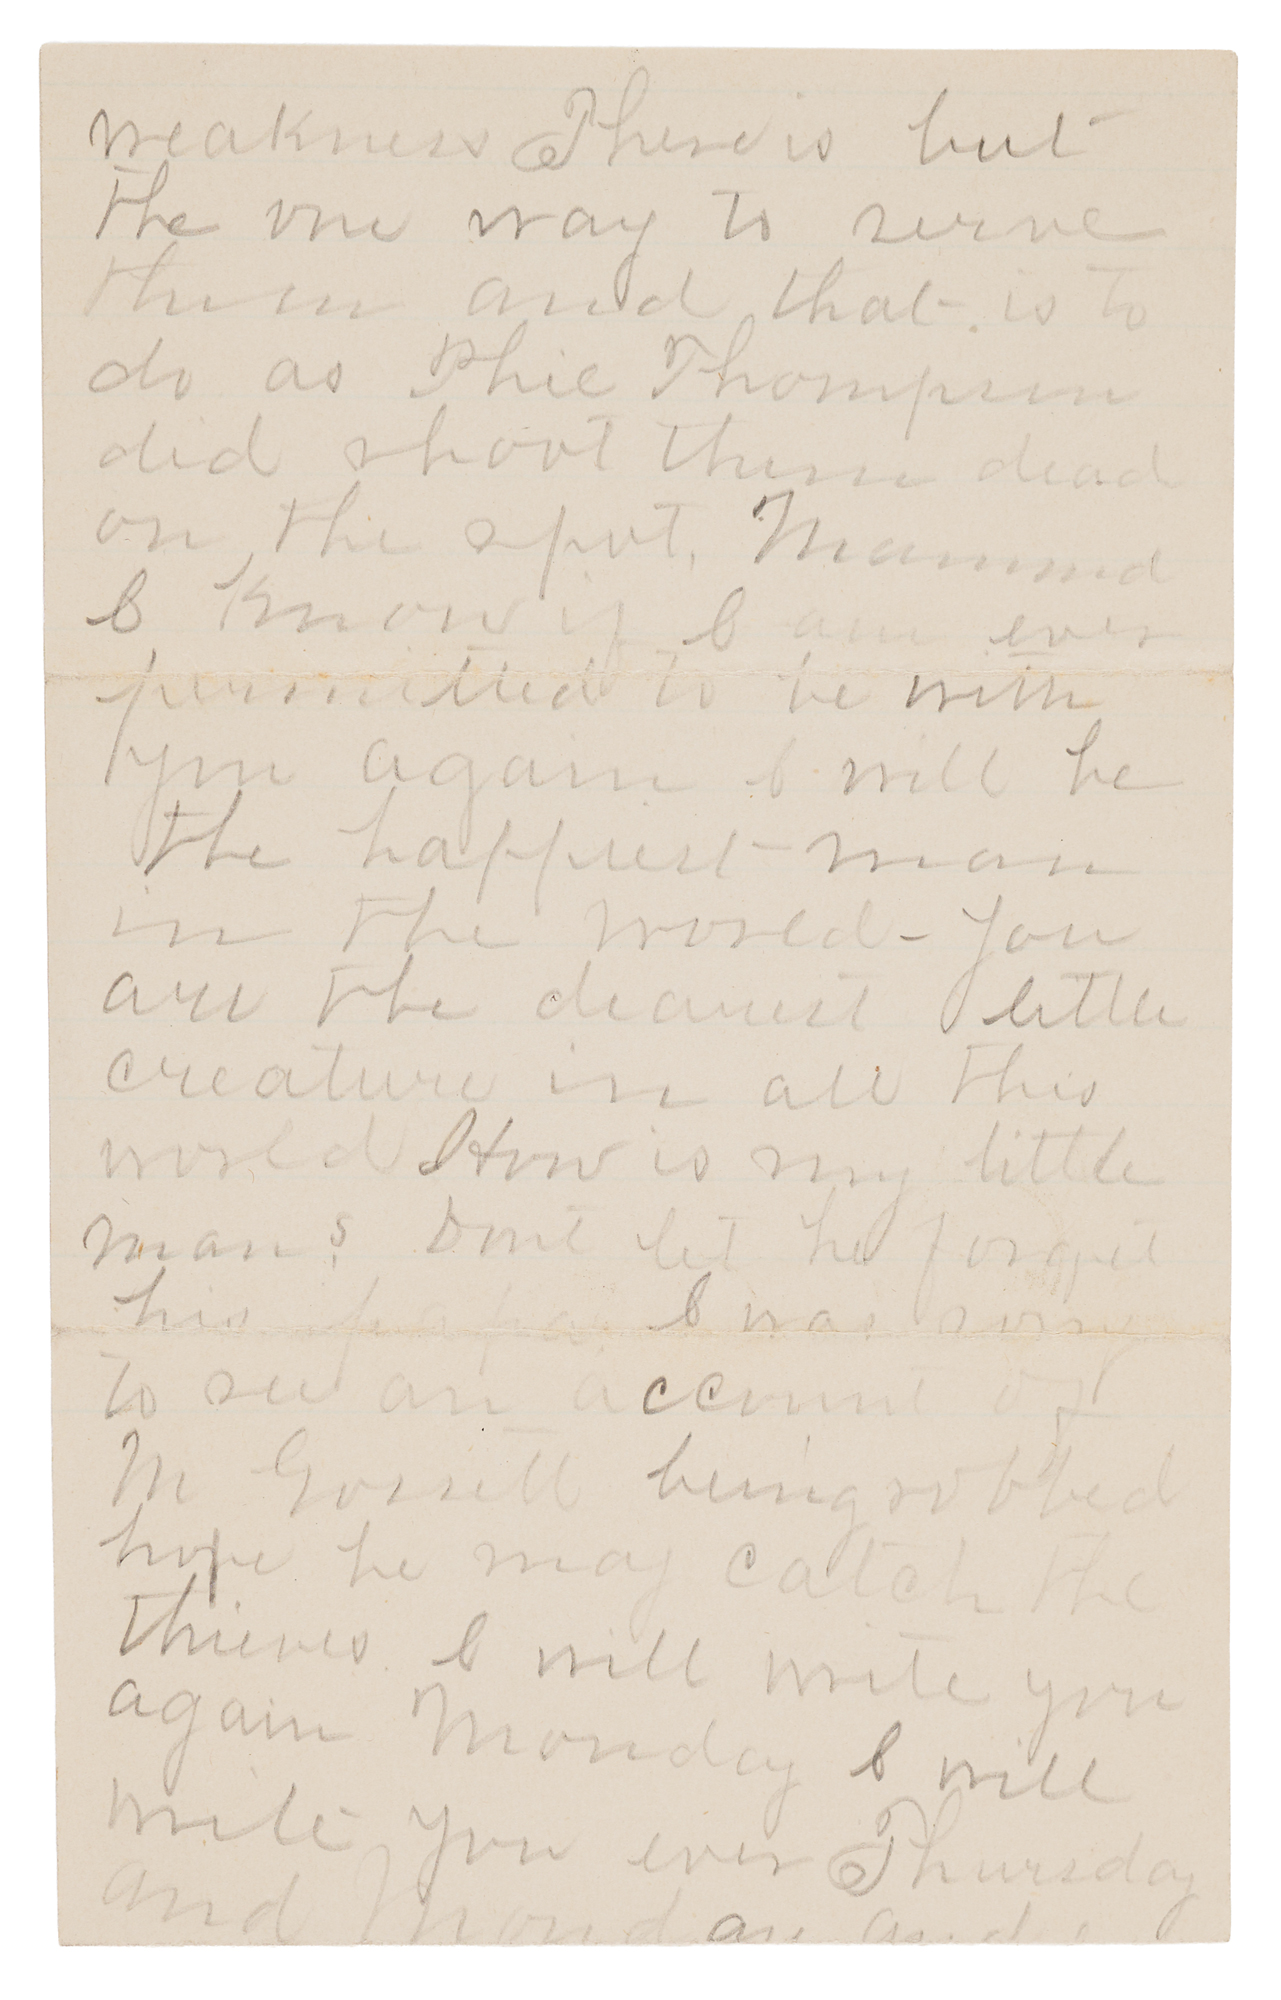 weakness There is but
the one way to serve
them and that is to
do as Phil Thompson
did shoot them dead
on the spot, Mammd
I know if I am ever
permitted to be with
you again I will be
the happiest man
in the world - you
are the dearest little
creature in all this
world How is my little
man? Dont let he forget
his papa. I was sorry
to see an account of
M Gossett being robbed
hope he may catch the
thieves. I will write you
again Monday I will
write you ever Thursday
and Monday and